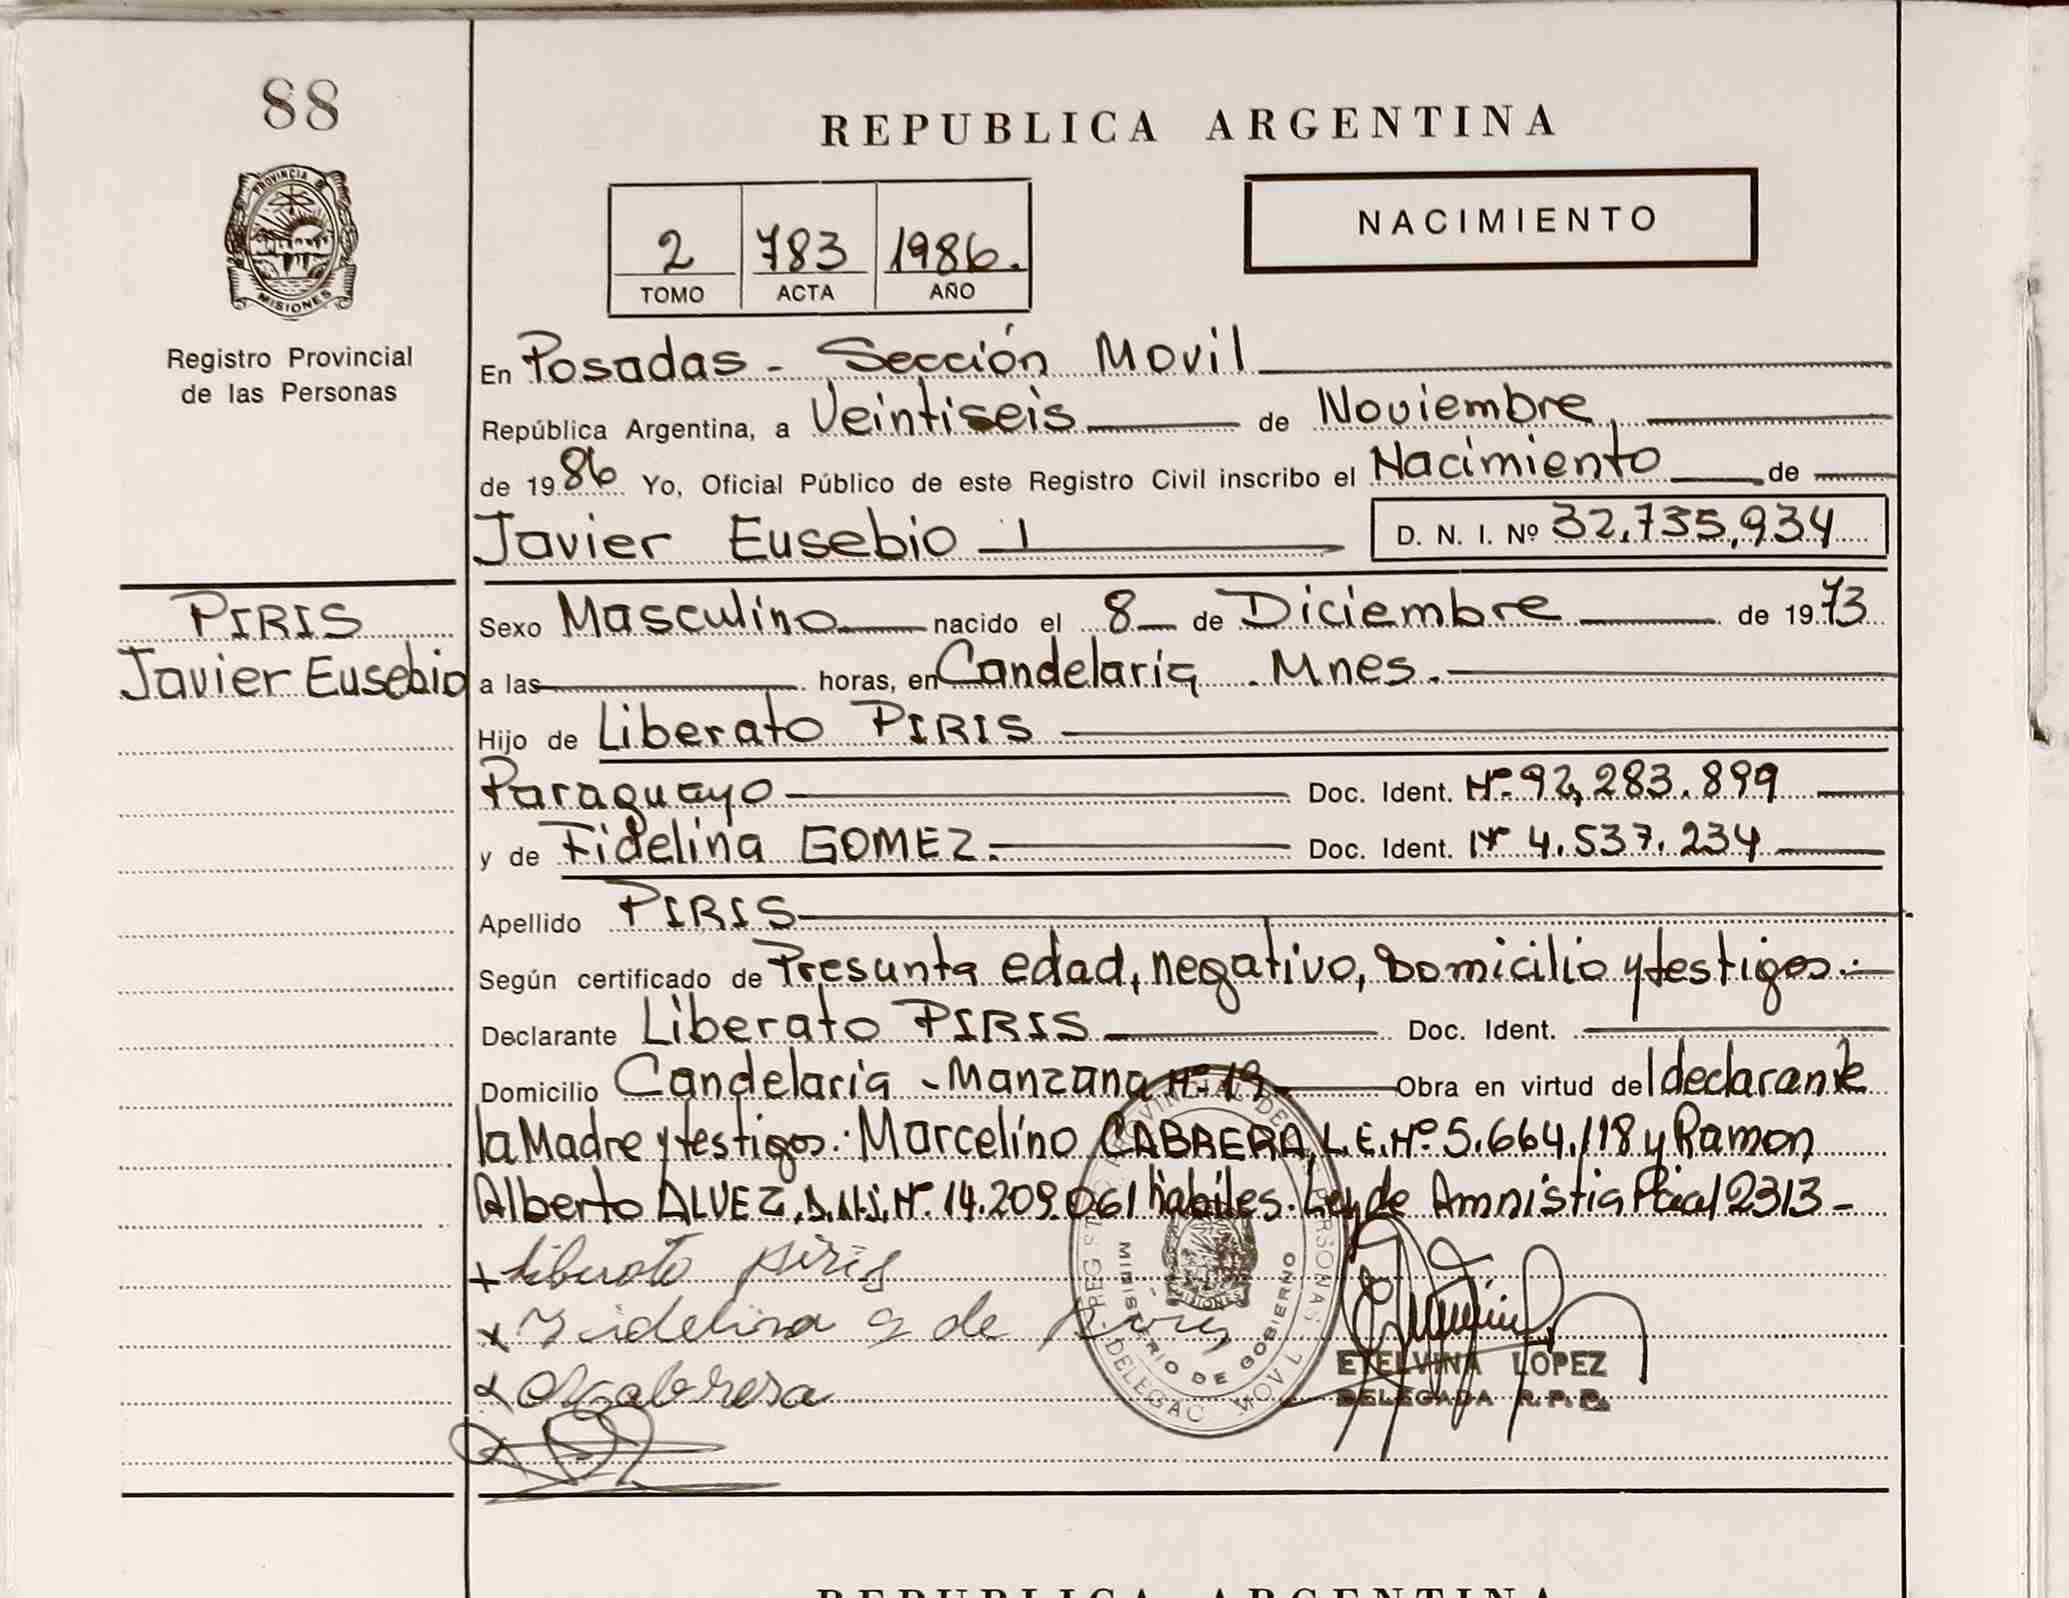 88
REPUBLICA ARGENTINA
PROVINCIA DE
MISIONES
NACIMIENTO
2 783 1986.
TOMO ACTA AÑO
Registro Provincial
de las Personas
En Posadas - Sección Movil
República Argentina, a Veintiseis de Noviembre,
de 1986 Yo, Oficial Público de este Registro Civil inscribo el Nacimiento de
Javier Eusebio D. N. I. Nº 32.735,934
PIRIS
Javier Eusebio
Sexo Masculino nacido el 8 de Diciembre de 1973
a las horas, en Candelaria . Mnes.
Hijo de Liberato PIRIS
Paraguayo Doc. Ident. Nº 92,283.899
y de Fidelina GOMEZ. Doc. Ident. Nº 4.537.234
Apellido PIRIS
Según certificado de Presunta edad, negativo, Domicilio y testigos.-
Declarante Liberato PIRIS Doc. Ident.
Domicilio Candelaria - Manzana Nº 19 Obra en virtud del declarante
la Madre y testigos: Marcelino CABRERA, L.E. Nº 5.664.118 y Ramon
Alberto ALVEZ, D.N.I. Nº 14.209.061 habiles. Ley de Amnistia Pcial 2313 -
+ Liberato piris
x Fidelina g de Piris
x Cabrera
REGISTRO PROVINCIAL DE LAS PERSONAS
MINISTERIO DE GOBIERNO
MISIONES
DELEGAC MOVIL
ETELVINA LOPEZ
DELEGADA R.P.P.
REPUBLICA ARGENTINA